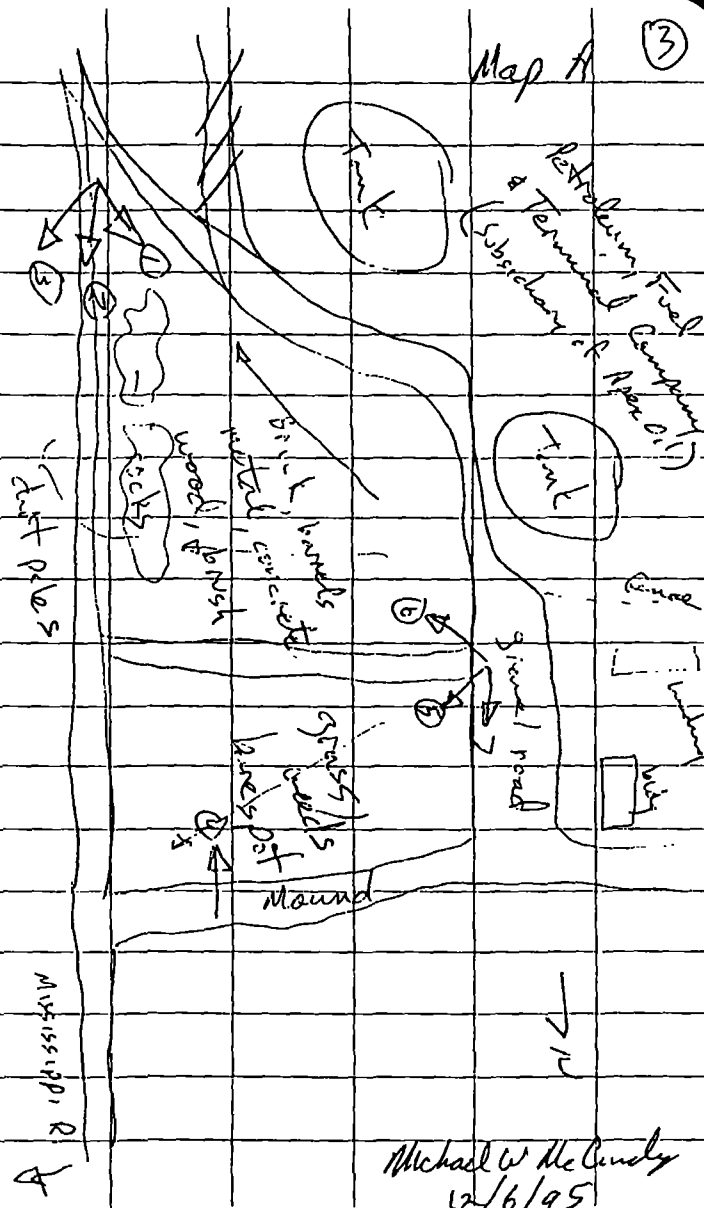 3
Map A
Petroleum Fuel
& Terminal Company
(subsidiary of Apex Oil)
Tank
Tank
building
gravel road
brick, barrels
metal, concrete
wood, brush
rocks
dirt piles
1
2
3
6
5
4
x
grass/
weeds
Mound
Mississippi R.
N
Michael W McCurdy
12/6/95